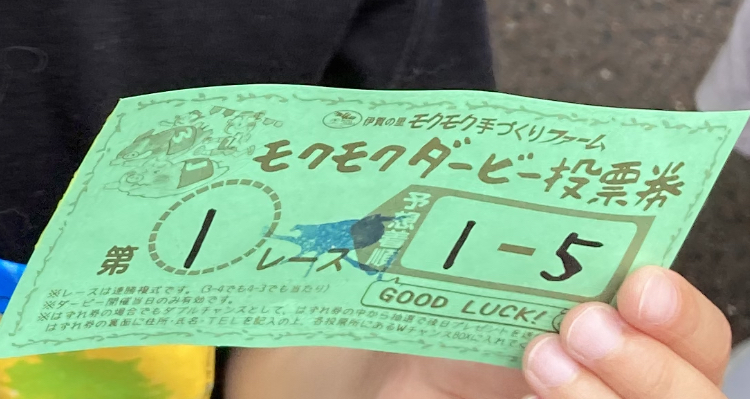 伊賀の里 モクモク手づくりファーム
モクモクダービー投票券
第1レース
予想着順
1-5
GOOD LUCK!
※レースは連勝複式です。(3-4でも4-3でも当たり)
※ダービー開催当日のみ有効です。
※はずれ券の場合でもダブルチャンスとして、はずれ券の中から抽選で後日プレゼントを
はずれ券の裏面に住所・氏名・TELを記入の上、各投票所にあるWチャンスBOXに入れて